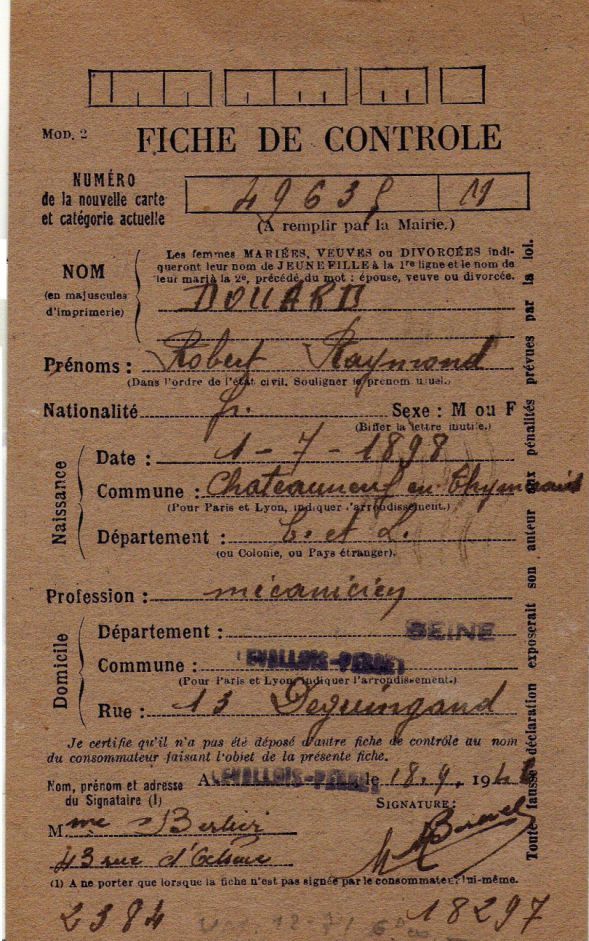 MOD. 2 FICHE DE CONTROLE
NUMÉRO
de la nouvelle carte
et catégorie actuelle
49635 M
(A remplir par la Mairie.)
NOM
(en majuscules
d'imprimerie)
Les femmes MARIÉES, VEUVES ou DIVORCÉES indi-
queront leur nom de JEUNE FILLE à la 1re ligne et le nom de
leur mari à la 2e, précédé du mot : épouse, veuve ou divorcée.
DOUARD
Prénoms : Robert Raymond
(Dans l'ordre de l'état civil. Souligner le prénom usuel.)
Nationalité fr. Sexe : M ou F
(Biffer la lettre inutile.)
Naissance
Date : 1-7-1898
Commune : Chateauneuf en Thymerais
(Pour Paris et Lyon, indiquer l'arrondissement.)
Département : E. et L.
(ou Colonie, ou Pays étranger).
Profession : mécanicien
Domicile
Département : SEINE
Commune : LEVALLOIS-PERRET
(Pour Paris et Lyon indiquer l'arrondissement.)
Rue : 13 Deguingand
Je certifie qu'il n'a pas été déposé d'autre fiche de contrôle au nom
du consommateur faisant l'objet de la présente fiche.
Nom, prénom et adresse
du Signataire (1)
A LEVALLOIS-PERRET le 18.9.194
SIGNATURE :
M me Berlier
43 rue d'
(1) A ne porter que lorsque la fiche n'est pas signée par le consommateur lui-même.
2384 18297
Toute fausse déclaration exposerait son auteur aux pénalités prévues par la loi.